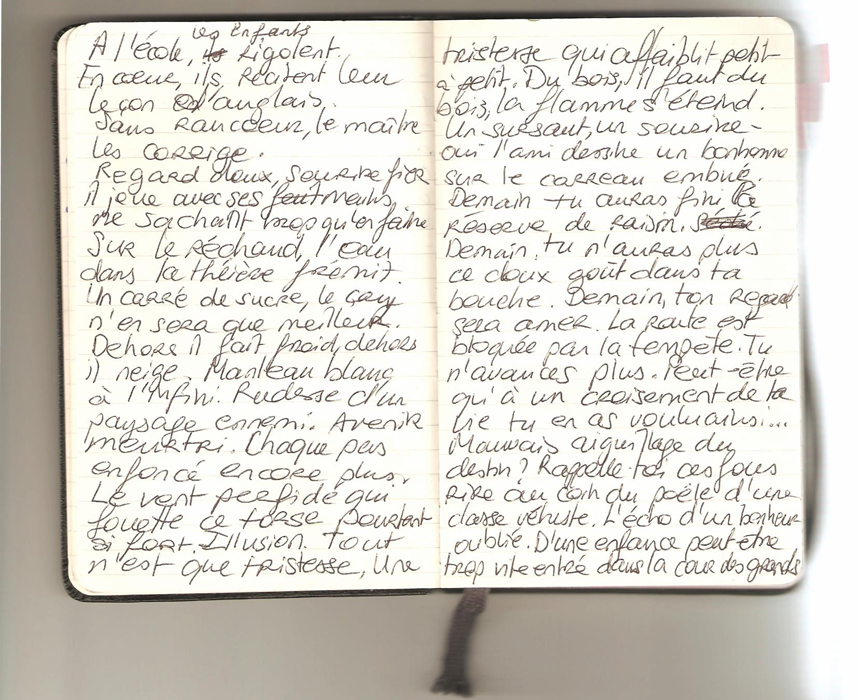 les Enfants
A l'école, ils rigolent.
En cœur, ils récitent leur
leçon d'anglais.
Sans rancoeur, le maître
les corrige.
Regard doux, sourire fier
il joue avec ses
ne sachant trop qu'en faire
Sur le réchaud, l'eau
dans la théière frémit.
Un carré de sucre, le çay
n'en sera que meilleur.
Dehors il fait froid, dehors
il neige. Manteau blanc
à l'infini. Rudesse d'un
paysage ennemi. Avenir
meurtri. Chaque pas
enfoncé encore plus.
Le vent perfide qui
fouette ce torse pourtant
si fort. Illusion. Tout
n'est que tristesse, Une
tristesse qui affaiblit petit-
à-petit. Du bois, il faut du
bois, la flamme s'éteind.
Un sursaut, un sourire -
oui l'ami dessine un bonhomme
sur le carreau embué.
Demain tu auras fini la
réserve de raisin.
Demain, tu n'auras plus
ce doux goût dans ta
bouche. Demain, ton regard
sera amer. La route est
bloquée par la tempête. Tu
n'avances plus. Peut-être
qu'à un croisement de ta
vie tu en as voulu ainsi...
Mauvais aiguillage du
destin ? Rappelle-toi ces fous
rire au coin du poële d'une
classe vétuste. L'écho d'un bonheur
oublié. D'une enfance peut-être
trop vite entré dans la cour des grands